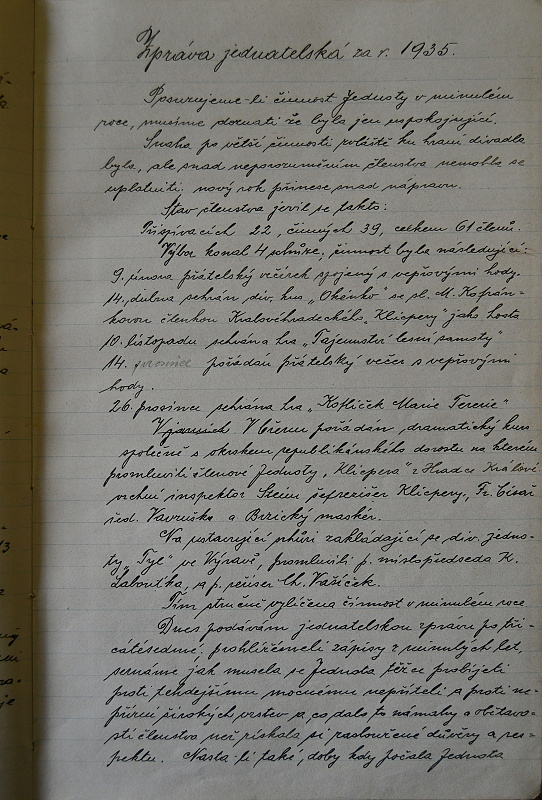 Zpráva jednatelská za r. 1935.
Posuzujeme-li činnost Jednoty v minulém
roce, musíme doznati že byla jen uspokojující.
Snaha po větší činnosti zvláště ku hraní divadla
byla, ale snad neporozuměním členstva nemohla se
uplatniti. nový rok přinese snad nápravu.
Stav členstva jevil se takto:
Přispívacích 22, činných 39, celkem 61 členů.
Výbor konal 4 schůze, činnost byla následující:
9. února přátelský večírek spojený s vepřovými hody.
14. dubna sehrán div. kus „Okénko" se sl. M. Kofrán-
kovou členkou Královéhradeckého „Klicpery" jako hosta
10. listopadu sehrána hra „Tajemství lesní samoty"
14. prosince pořádán přátelský večer s vepřovými
hody.
26. prosince sehrána hra „Koflíček Marie Terezie"
V březnu pořádán dramatický kurs
společně s okrskem republikánského dorostu na kterém
promluvili členové Jednoty „Klicpera" z Hradce Králové
vrchní inspektor Steim šefrežiser Klicpery, Fr. Císař
řed. Vavruška a Brzický maskér.
Na ustavující schůzi zakládající se div. jedno-
ty „Tyl" ve Výravě, promluvili p. místopředseda K.
Labouťka, a p. režiser Ch. Vašíček.
Tím stručně vylíčena činnost v minulém roce
Dnes podávám jednatelskou zprávu po tři-
cátésedmé, prohlížímeli zápisy z minulých let,
seznáme jak musela se Jednota těžce probíjeti
proti tehdejšímu mocnému nepříteli a proti ne-
přízni širokých vrstev a co dalo to námahy a obětavo-
sti členstva než získala si zasloužené důvěry a res-
pektu. Nasta-li také, doby kdy počala Jednota